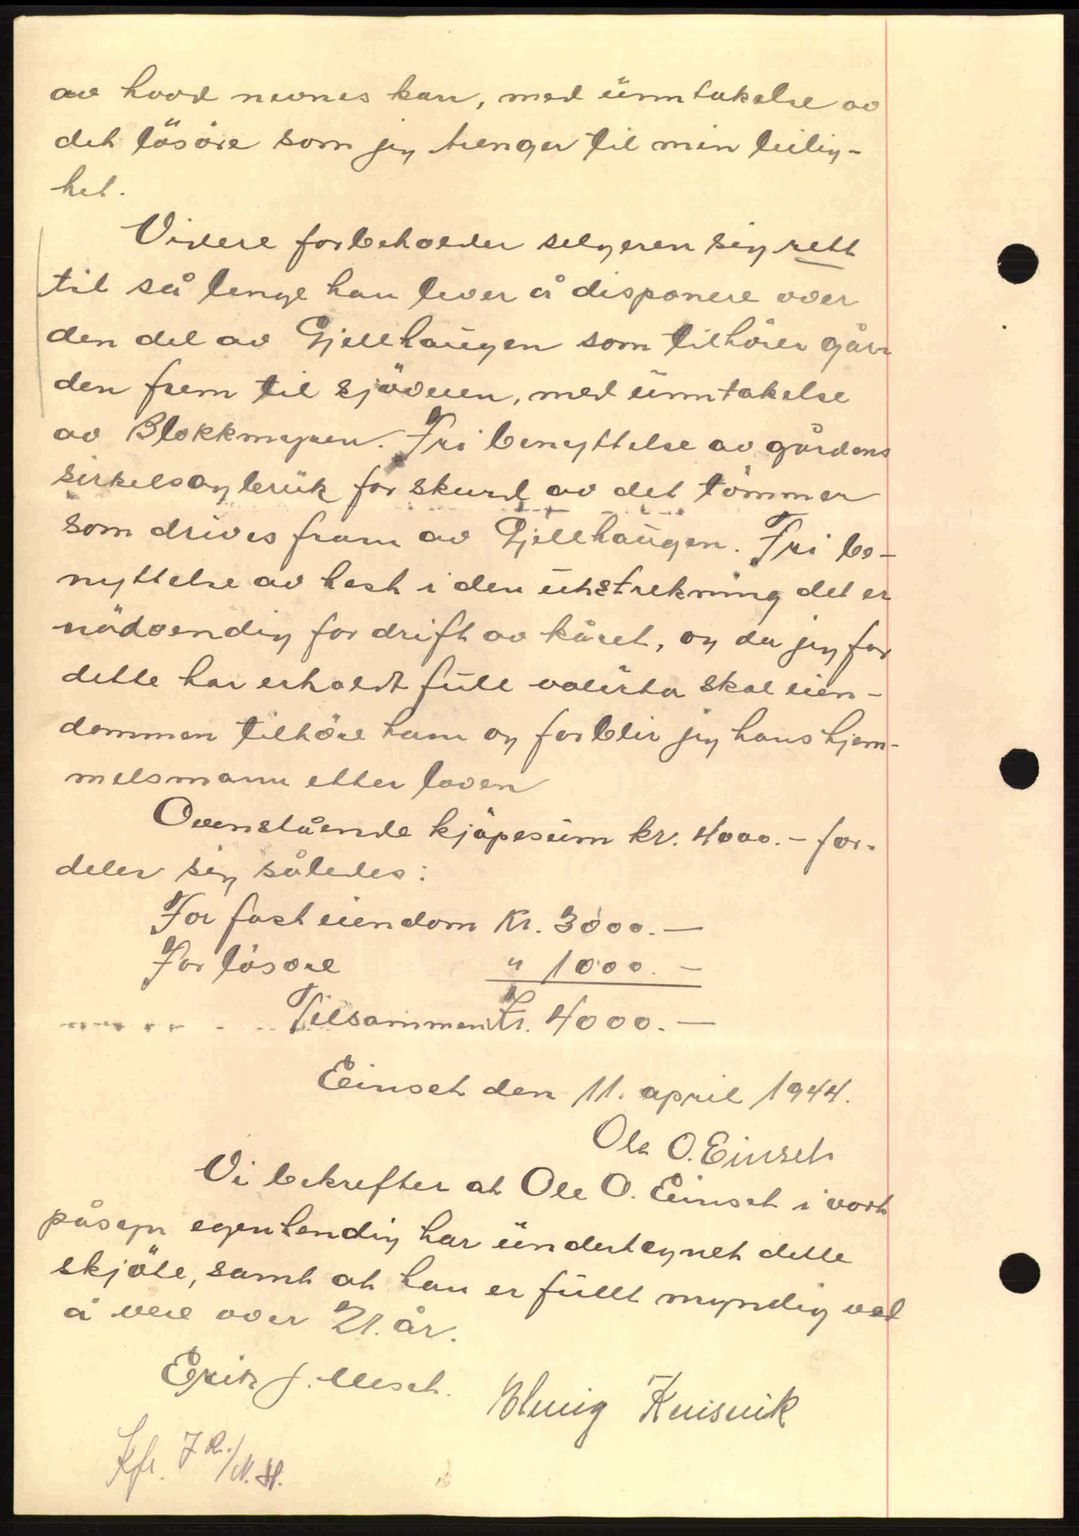 av hvad nevnes kan, med ünntakelse av
det lösöre som jeg trenger til min leilig-
het.
Videre forbeholder selgeren sig rett
til så lenge han lever å disponere over
den del av Gjellhaugen som tilhörer går-
den frem til sjöveien, med ünntakelse
av Blokkmyren. Fri benyttelse av gårdens
sirkelsagbrük for skurd av det tömmer
som drives fram av Gjellhaügen. Fri be-
nyttelse av hest i den ütstrekning det er
nödvendig for drift av kåret, og da jeg for
dette har erholdt füll valüta skal eien-
dommen tilhöre ham og forblir jeg hans hjem-
melsmann etter loven
Ovenstående kjöpesüm kr. 4000.- for-
deler sig således:
For fast eiendom Kr. 3000.—
For lösöre " 1000.—
Tilsammen Kr. 4000.—
Einset den 11. april 1944.
Ole O. Einset
Vi bekrefter at Ole O. Einset i vort
påsyn egenhendig har ündertegnet dette
skjöte, samt at han er füllt myndig ved
å vere over 21. år.
Erik J.
Kfr. J.R./N.H.